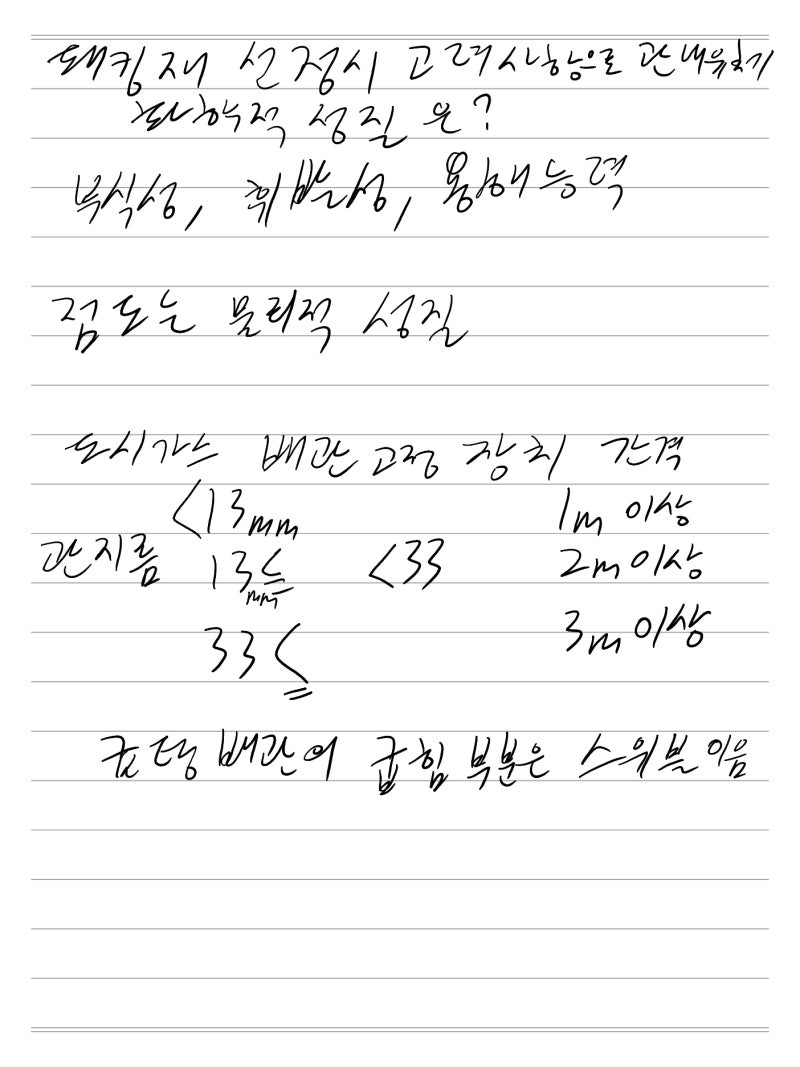 패킹재 선정시 고려사항으로 관내유체가
화학적 성질은?
부식성, 휘발성, 용해능력
점도는 물리적 성질
도시가스 배관 고정 장치 간격
<13mm 1m 이상
관지름 13mm≤ <33 2m 이상
33≤ 3m 이상
배관의 굽힘 부분은 스위블 이음